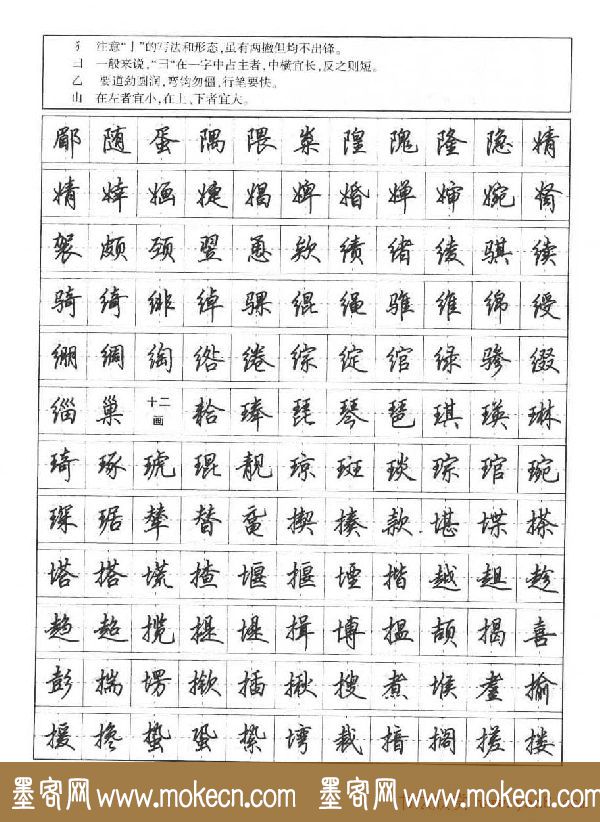 犭 注意“丿”的写法和形态,虽有两撇但均不出锋。
曰 一般来说,“曰“在一字中占主者,中横宜长,反之则短。
乙 要道劲圆润,弯钩勿僵,行笔要快。
山 在左者宜小,在上、下者宜大。
郿 随 蛋 隅 隈 粜 隍 隗 隆 隐 婧
婊 婞 婳 婕 娼 婢 婚 婵 婶 婉 胬
袈 颇 颈 翌 恿 欸 绩 绪 绫 骐 续
骑 绮 绯 绰 骒 绲 绳 骓 维 绵 绶
绷 绸 绹 绺 绻 综 绽 绾 绿 骖 缀
缁 巢 十二画 耠 琫 琵 琴 琶 琪 瑛 琳
琦 琢 琥 琨 靓 琼 斑 琰 琮 琯 琬
琛 琚 辇 替 鼋 揳 揍 款 堪 堞 搽
塔 搭 塃 揸 堰 揠 堙 揩 越 趄 趁
趋 超 揽 提 堤 揖 博 揾 颉 揭 喜
彭 揣 塄 揿 插 揪 搜 煮 堠 耋 揄
援 搀 蛰 蛩 絷 塆 裁 揞 搁 搓 搂
墨客网 www.mokecn.com 墨客网 www.mokecn.com